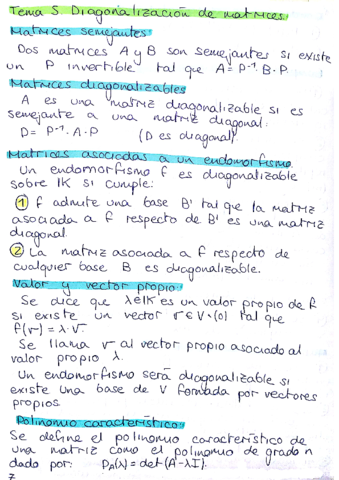 Tema 5. Diagonalización de matrices.
Matrices semejantes
Dos matrices A y B son semejantes si existe
un P invertible tal que A = P⁻¹. B. P.
Matrices diagonalizables
A es una matriz diagonalizable si es
semejante a una matriz diagonal.
D = P⁻¹. A. P (D es diagonal)
Matrices asociadas a un endomorfismo
Un endomorfismo f es diagonalizable
sobre IK si cumple:
① f admite una base B' tal que la matriz
asociada a f respecto de B' es una matriz
diagonal.
② La matriz asociada a f respecto de
cualquier base B es diagonalizable.
Valor y vector propio
Se dice que λ∈IK es un valor propio de f
si existe un vector v∈V-{0} tal que
f(v) = λ. v
Se llama v al vector propio asociado al
valor propio λ.
Un endomorfismo será diagonalizable si
existe una base de V formada por vectores
propios.
Polinomio característico
Se define el polinomio característico de
una matriz como el polinomio de grado n
dado por: P_A(λ) = det(A-λI).